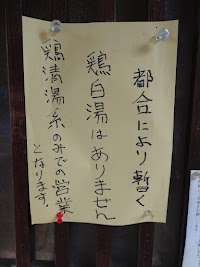 都合により暫く
鶏白湯はありません
鶏清湯系のみでの営業
となります。